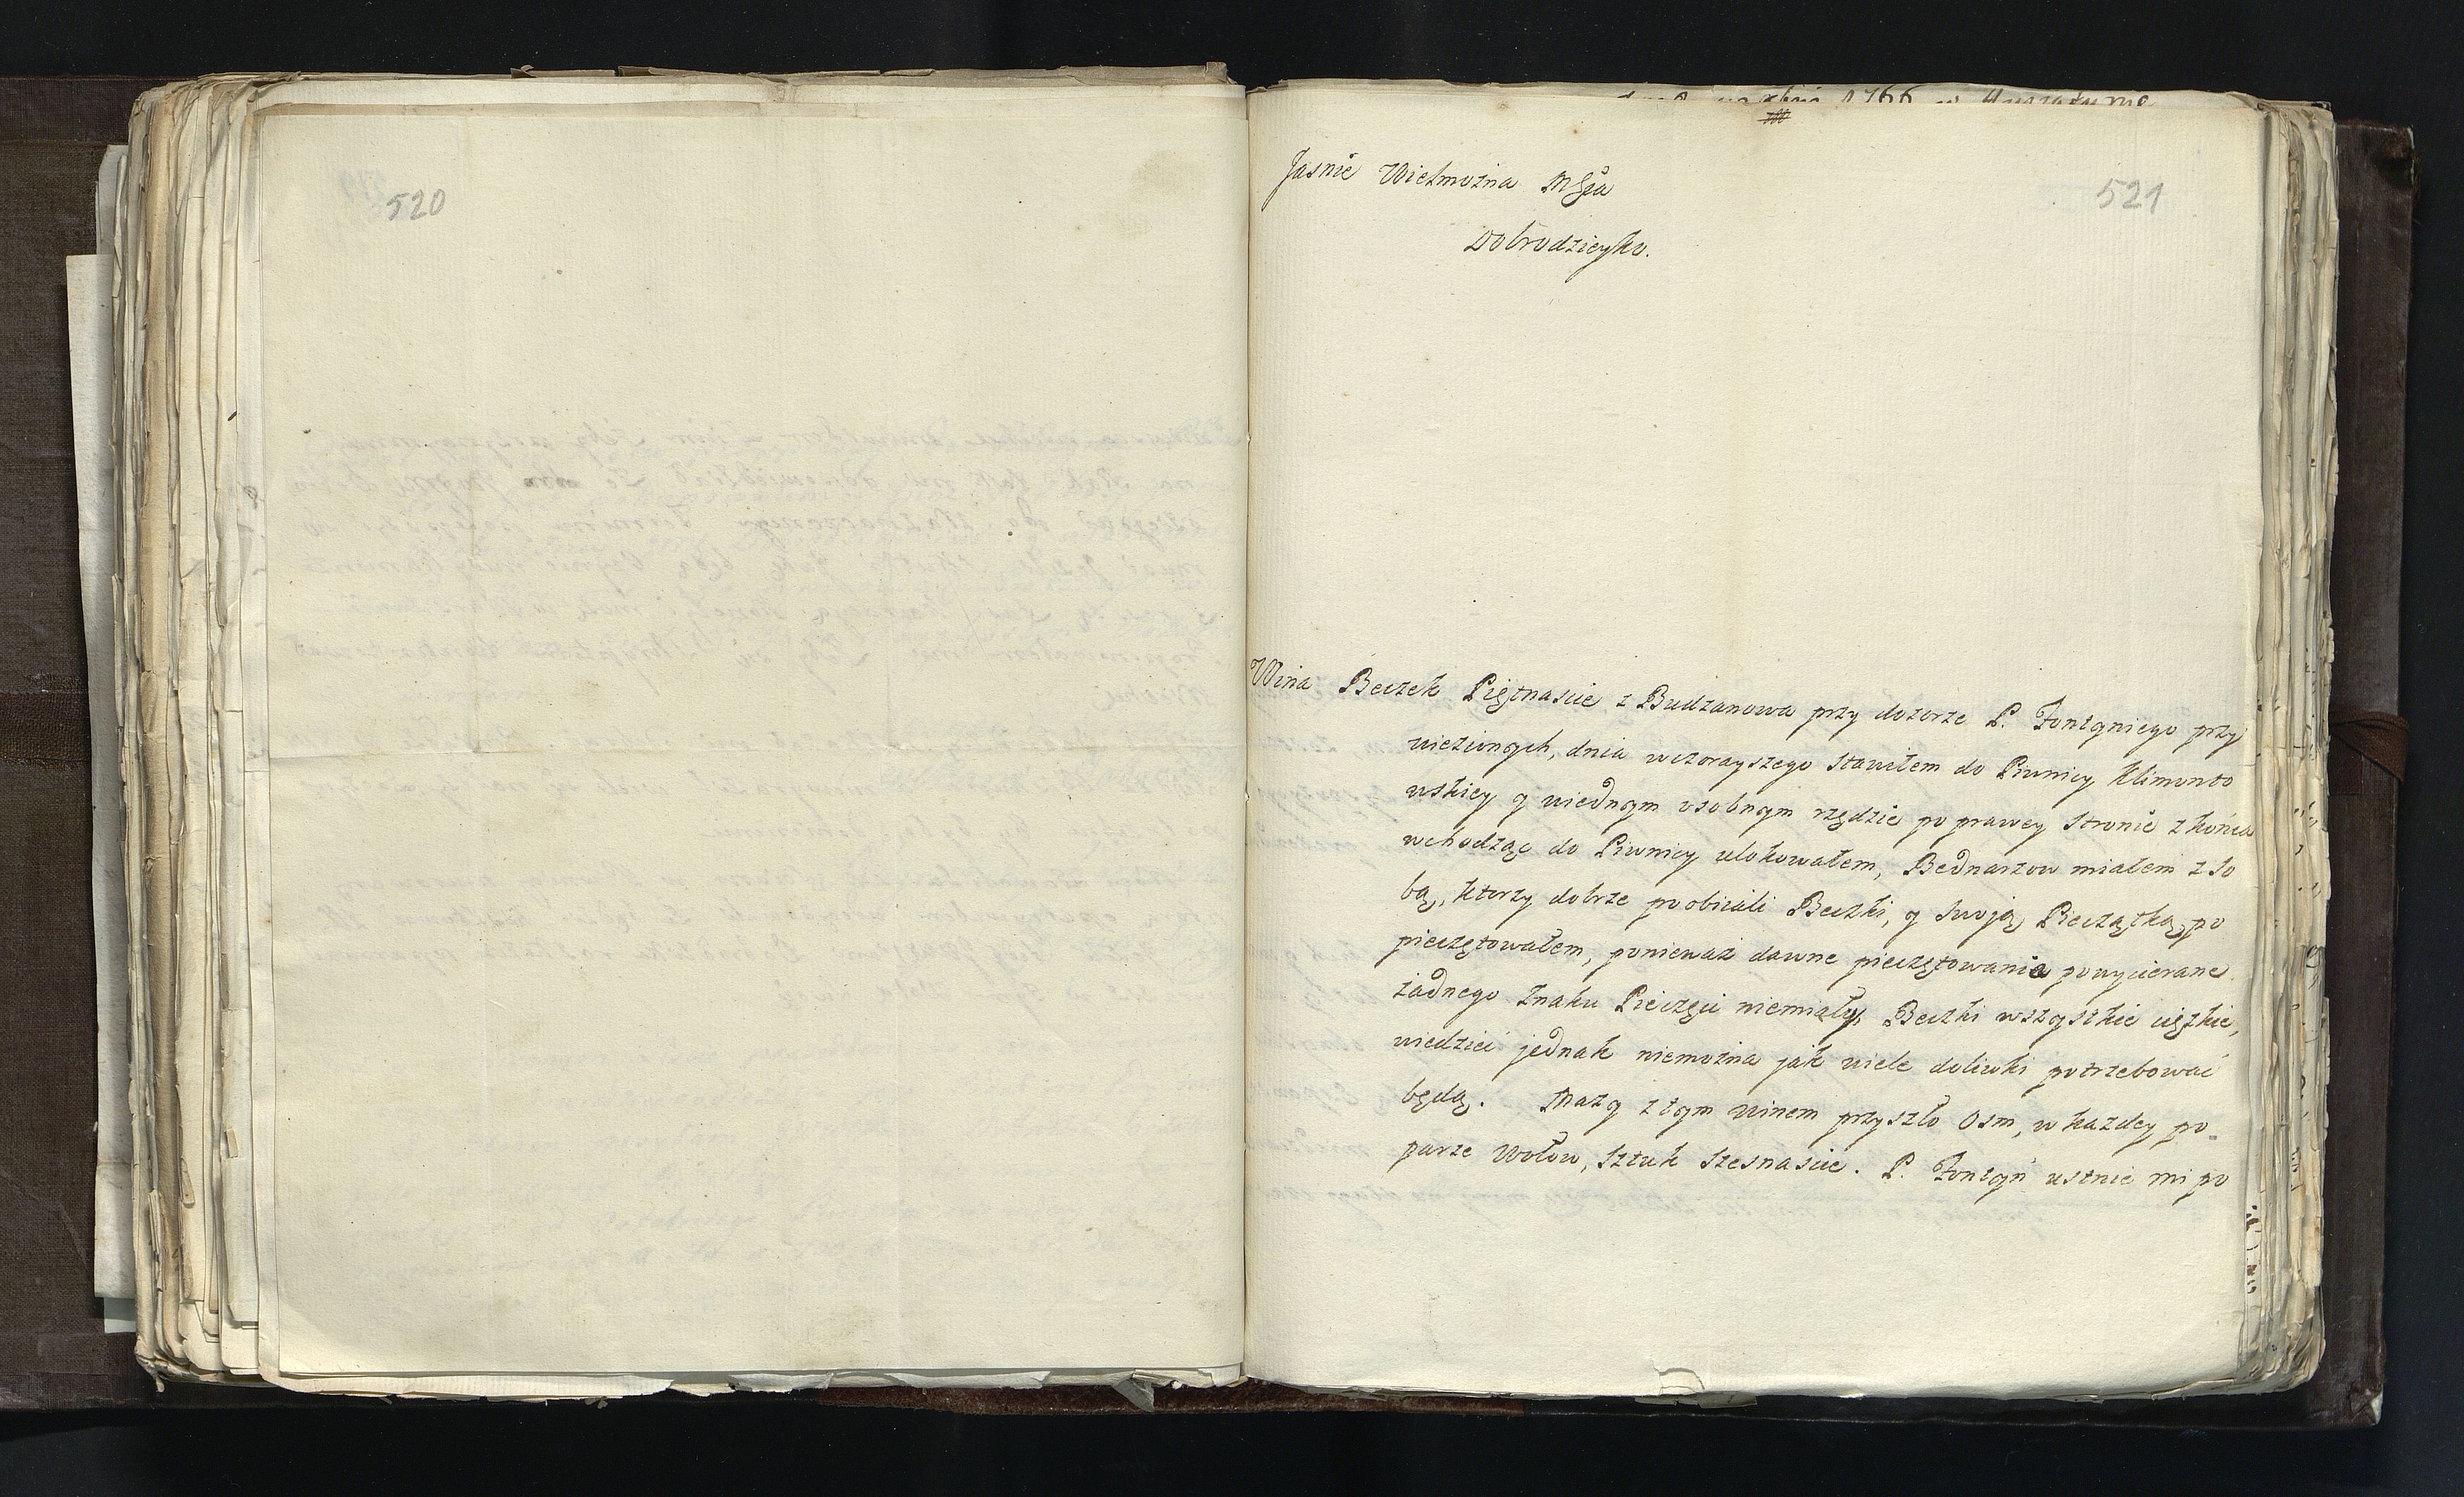 520
1766 w
521
Jasnie Wielmożna MŚcia
Dobrodzieyko.
Wina Beczek Piętnascie z Budzanowa przy dozorze P. Fontyniego przy
wiezionych, dnia wczorayszego stawiłem do Piwnicy Klimunto
wskiey y wiednym osobnym rzędzie po prawey stronie z końca
wchodząc do Piwnicy ulokowałem, Bednarzow miałem z so
bą, ktorzy dobrze poobiiali Beczki, y swoją Pieczątką po
pieczętowałem, ponieważ dawne pieczętowania powycierane
żadnego Znaku Pieczęci niemiały, Beczki wszystkie ciężkie,
wiedzieć jednak niemożna jak wiele doliwki potrzebować
będą. Maży z tym winem przyszło Osm, w każdey po
parze Wołow, Sztuk Szesnascie. P. Fontyn ustnie mi po